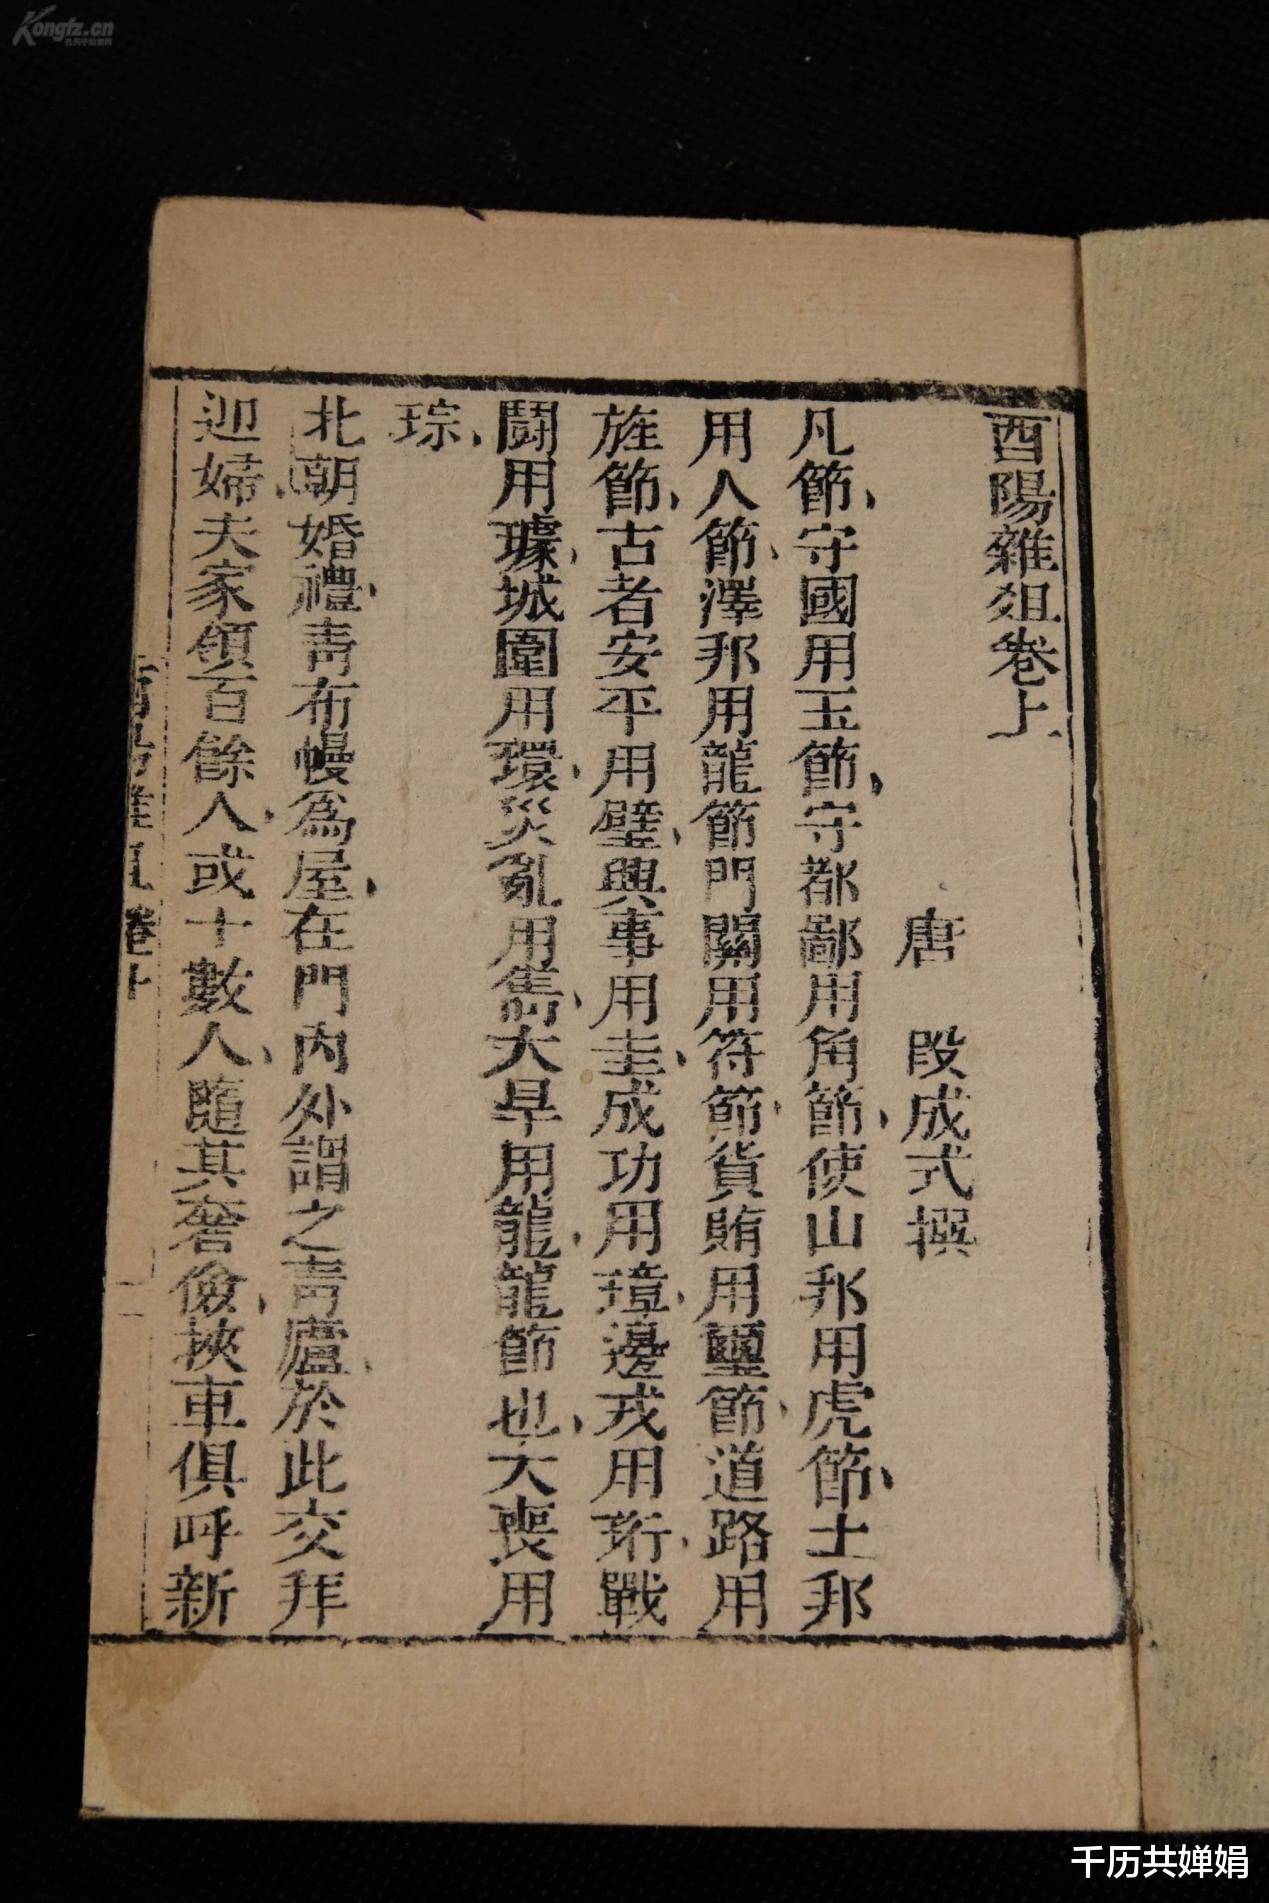 酉陽雜俎卷上
唐　段成式撰
凡節、守國用玉節、守都鄙用角節、使山邦用虎節、土邦
用人節、澤邦用龍節門關用符節、貨賄用璽節、道路用
旌節、古者安平用璧、興事用圭、成功用璋、邊戎用珩、戰
鬪用璩、城圍用環、災亂用雋、大旱用龍、龍節也、大喪用
琮、
北朝婚禮、青布幔爲屋、在門內外謂之青廬、於此交拜
迎婦、夫家領百餘人、或十數人、隨其奢儉、挾車俱呼新
Kongfz.cn
千历共婵娟